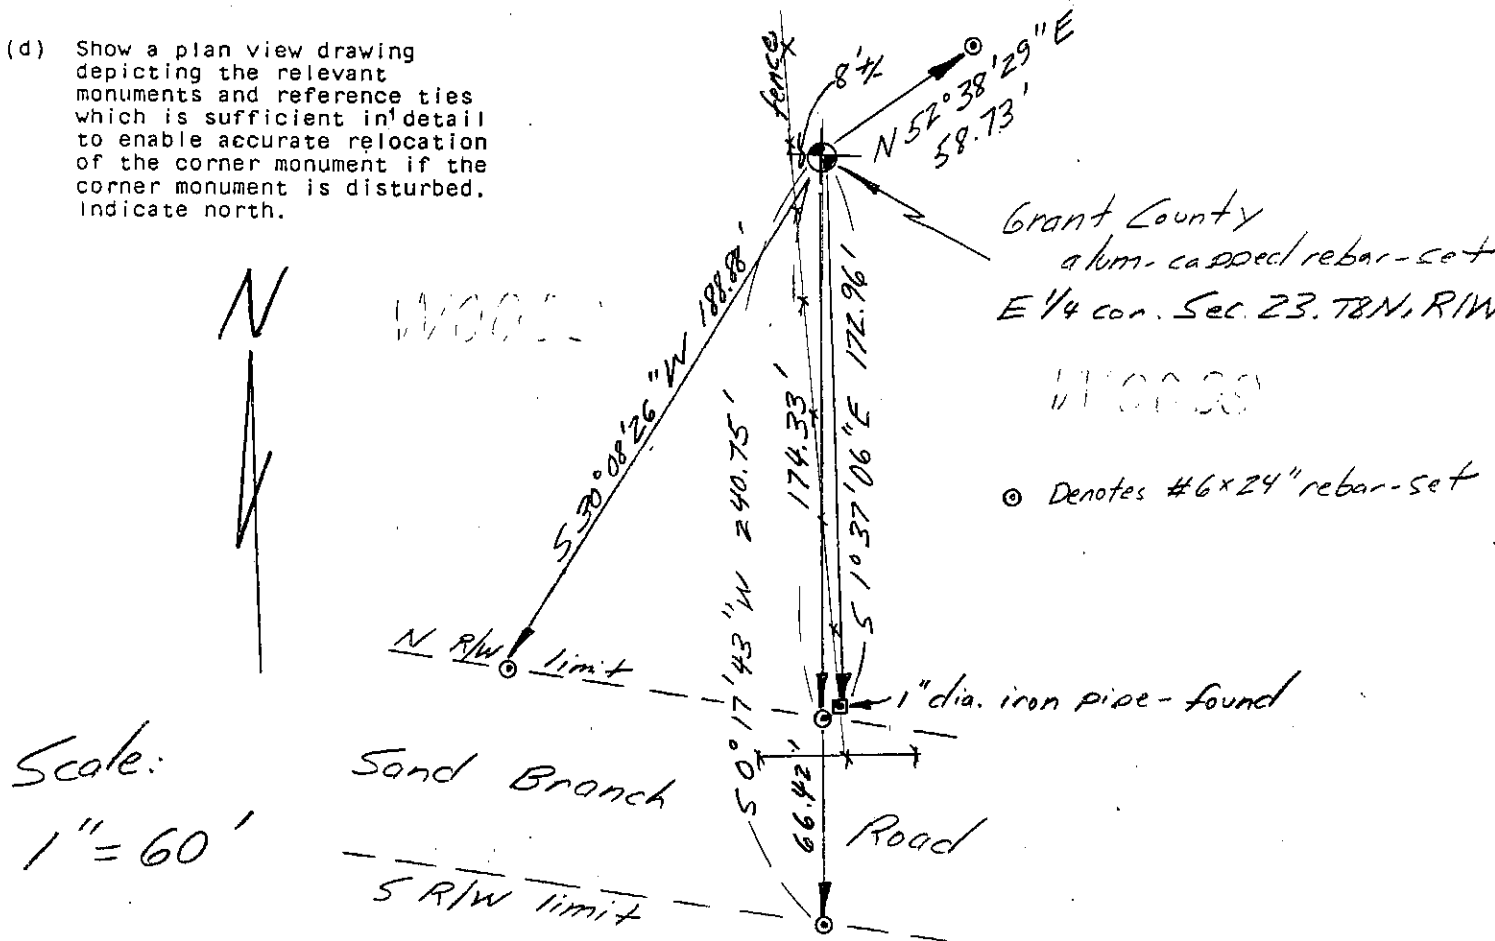 (d) Show a plan view drawing
depicting the relevant
monuments and reference ties
which is sufficient in detail
to enable accurate relocation
of the corner monument if the
corner monument is disturbed.
Indicate north.
fence
8'+/-
N 52°38'29"E
58.73'
Grant County
alum-capped rebar-set
E 1/4 cor. Sec. 23. T8N, R1W
N
WOODS
S 30°08'26"W 188.88'
S 0°17'43"W 240.75'
174.33'
S 1°37'06"E 172.96'
WOODS
Denotes #6x24" rebar-set
N R/W limit
1" dia. iron pipe-found
66.42'
Scale:
1"=60'
Sand Branch Road
S R/W limit